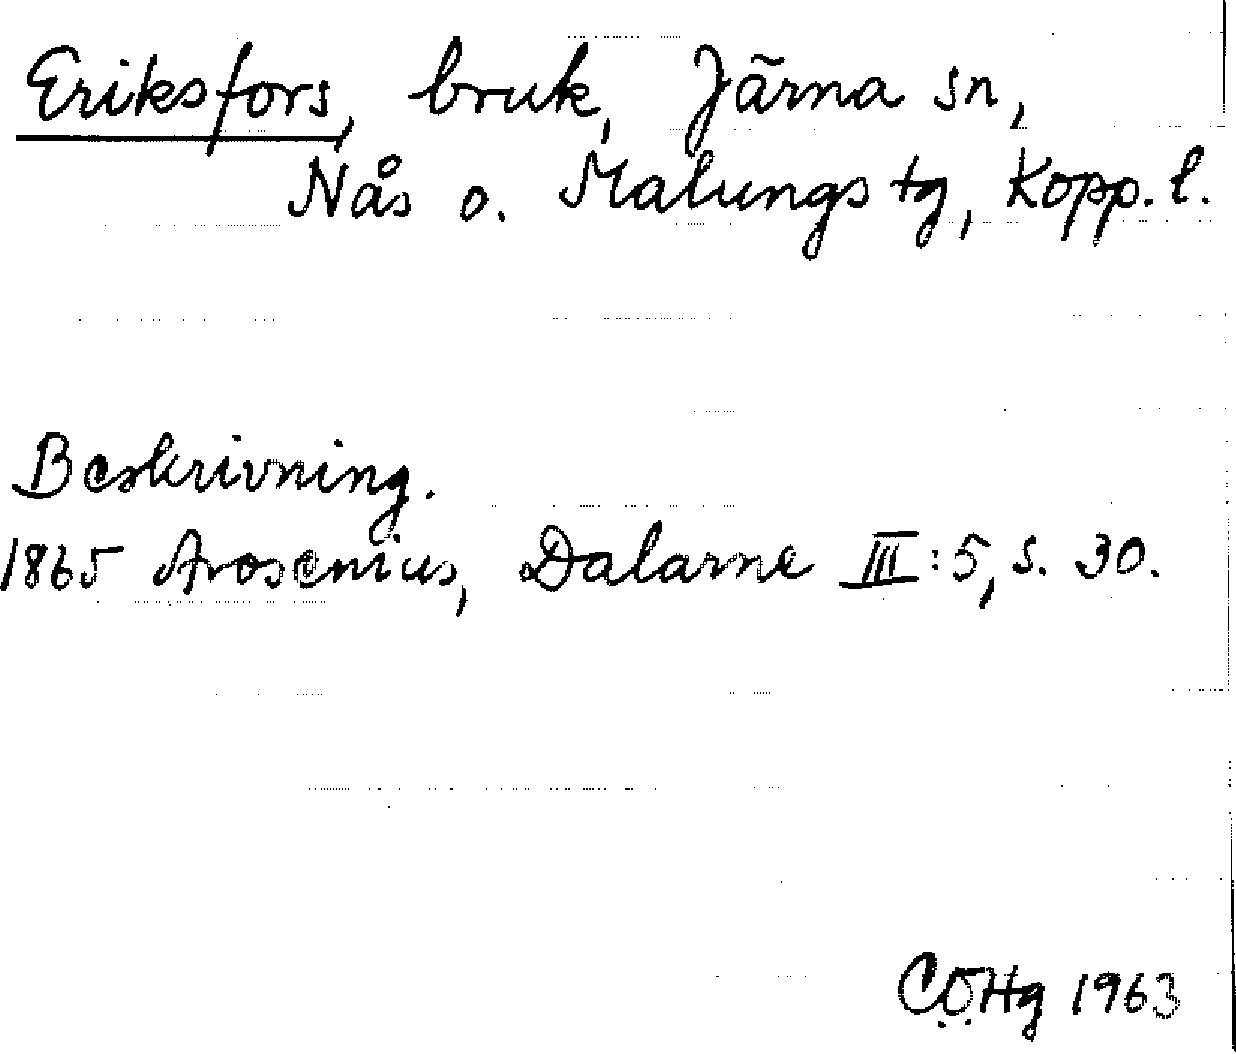 Eriksfors, bruk, Järna sn,
Nås o. Malungs tg, Kopp. l.
Beskrivning.
1865 Arosenius, Dalarne III:5, s. 30.
C.Ö.Hg 1963